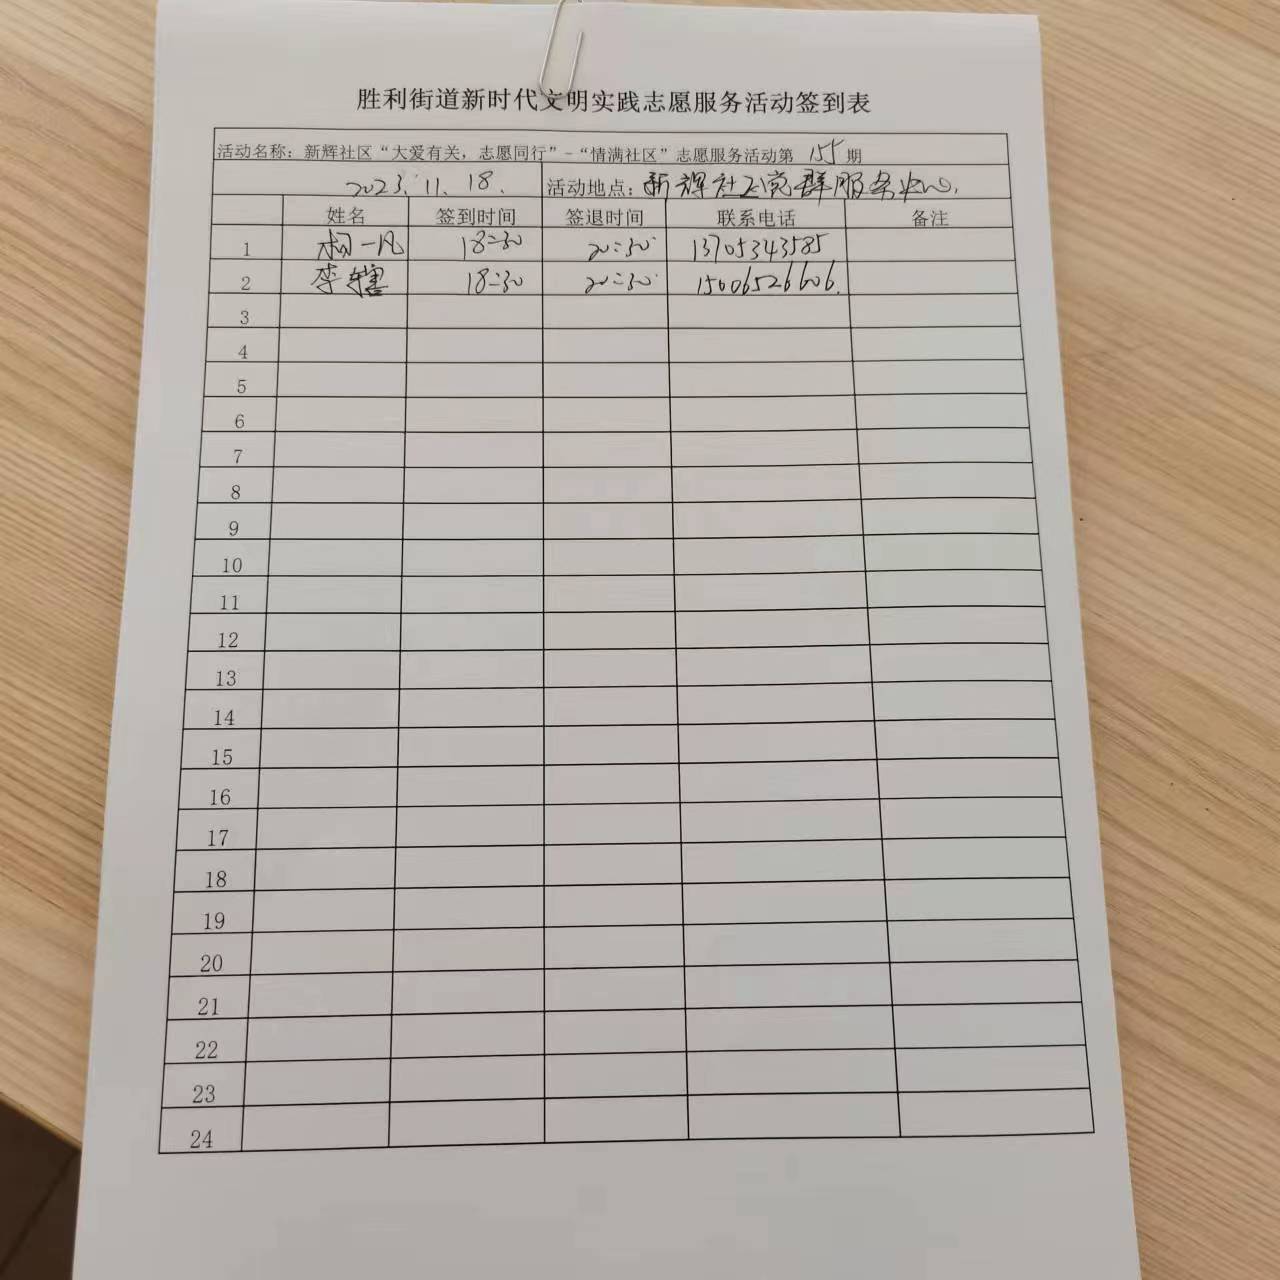 胜利街道新时代文明实践志愿服务活动签到表
活动名称：新辉社区“大爱有关，志愿同行”-“情满社区”志愿服务活动第 155 期
2023.11.18. 活动地点：新辉社区党群服务中心.
姓名 签到时间 签退时间 联系电话 备注
1 一凡 18:30 20:30 13705343585
2 李辖 18:30 20:30 15006526606.
3
4
5
6
7
8
9
10
11
12
13
14
15
16
17
18
19
20
21
22
23
24